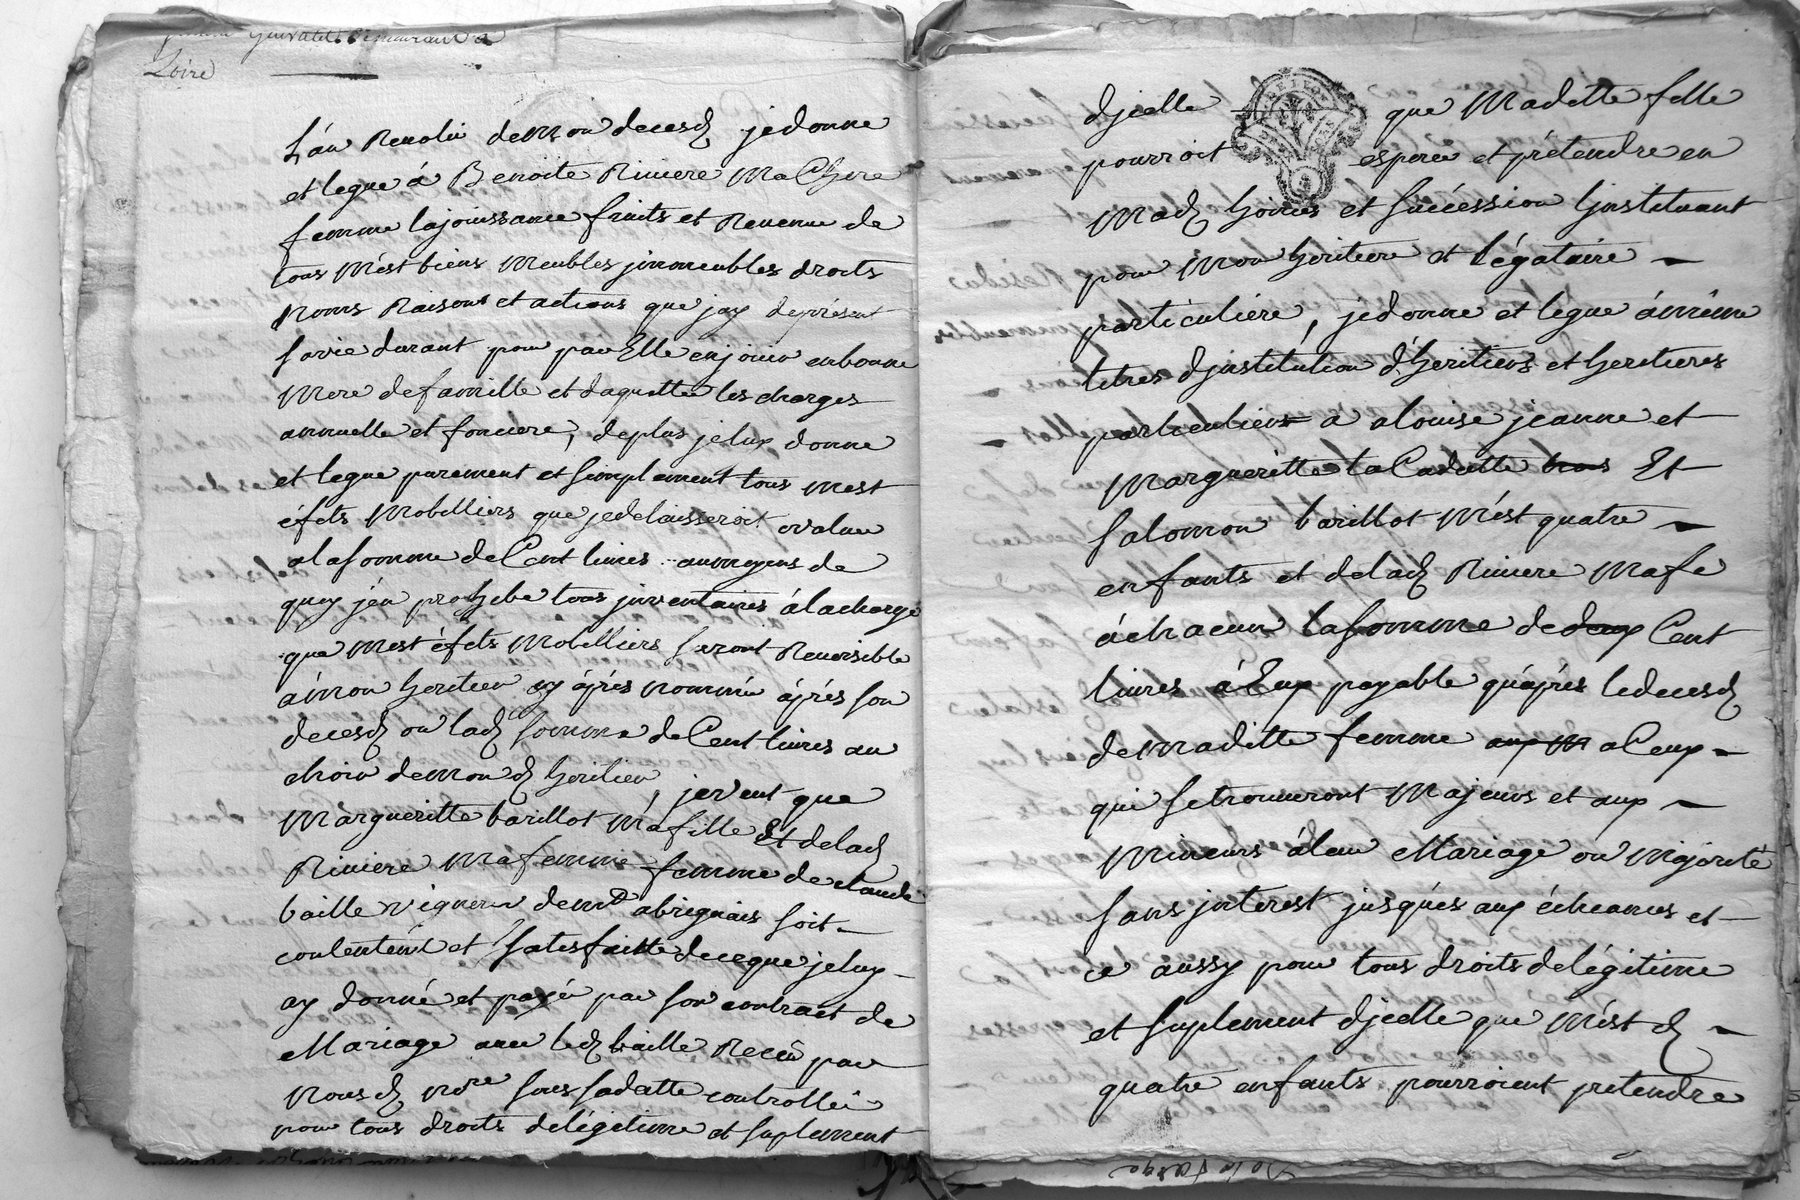 Loire
L'an Revolu de mon decesd je donne
et legue á Benoite Riviere Ma Chere
femme la jouissance fruits et Revenu de
tous Mest biens Meubles jmmeubles droits
Noms Raisons et actions que jay deprésent
sa vie durant pour par Elle en jouir en bonne
Mere de famille et daquitter les charges
annuelle et fonciere, de plus je luy donne
et legue purement et simplement tous mest
éfets Mobilliers que je delaisseroit evalue
a la somme de Cent livres aumoyens de
quoy j'en prohibe tous jnventaires á la charge
que Mest éfets Mobilliers seront Reversible
á mon heritier cy áprés nommé áprés son
decesd ou lad somme de Cent livres au
choix de mon d heritier, je veut que
Margueritte barillot Ma fille Et de lad
Riviere Ma femme femme de claude
baille vigneron de md abrignais soit
contentent et satisfaitte de ce que je luy
ay donné et payé par son contract de
Mariage avec led baille Receu par
Nous d nore sous sa datte controllé
pour tous droits de légitime et suplement
djcelle que Maditte fille
pourroit esperer et prétendre en
Mad hoirie et succéssion l'jnstituant
pour Mon heritiere et légataire
particuliére, je donne et legue á méme
titres d'jnstitution d'heritiers et heritieres
particuliers a alouise jeanne et
Margueritte la Cadette Et
Salomon barillot Mést quatre
enfants et de lad Riviere Ma fe
á chacun la somme de deux Cent
livres á Eux payable qu'áprés le decesd
de Maditte femme a Ceux
qui se trouveront Majeurs et aux
Mineurs á leur Mariage ou Majorité
sans jnterest jusqués aux écheances et
ce aussy pour tous droits de légitime
et suplement djcelle que Mést d
quatre enfants pourroient pretendre